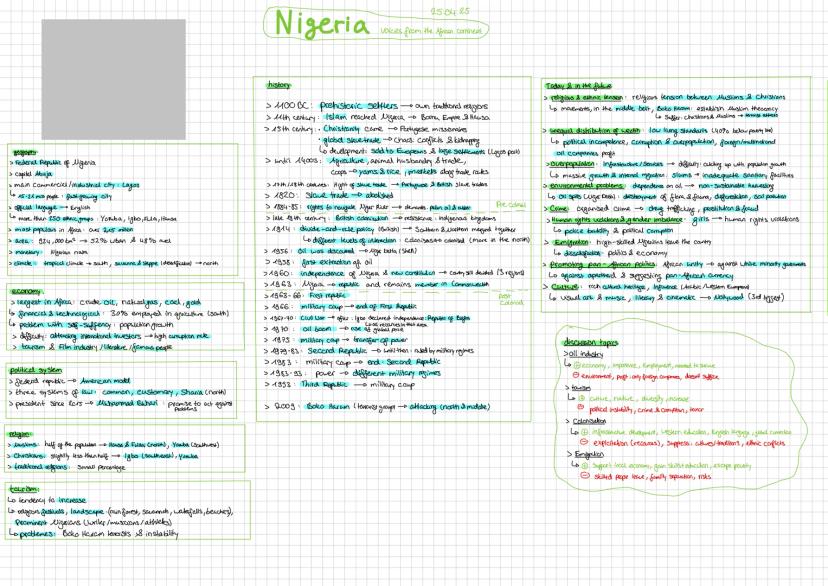 Nigeria
25.04.25
voices from the African continent
geography
> Federal Republic of Nigeria
> capital Abuja
> main commercial/industrial city: Lagos
↳ 15-21 mio people: fast growing city
> official language → English
↳ more than 250 ethnic groups: Yoruba, Igbo, Fula, Hausa
> most populous in Africa: over 205 million
> area: 924,000 km² → 52% urban & 48% rural
> monetary: Nigerian naira
> climate: tropical climate → south, savanna & steppe (desertification) → north
economy
> largest in Africa: crude oil, natural gas, coal, gold
↳ financial & technological: 30% employed in agriculture (south)
↳ problem with self-sufficiency: population growth
> difficulty: attracting international investors → high corruption rate
> tourism & Film industry/literature/famous people
political system
> federal republic → American model
> three systems of law: common, customary, Sharia (north)
> president since 2015 → Muhammad Buhari: promise to act against problems
religion
> Muslims: half of the population → Hausa & Fulani (north), Yoruba (southwest)
> Christians: slightly less than half → Igbo (southeast), Yoruba
> traditional religions: small percentage
tourism
↳ tendency to increase
↳ religious festivals, landscape (rainforest, savannah, waterfalls, beaches),
Prominent Nigerians (writer/musicians/athletes)
↳ problems: Boko Haram terrorists & instability
history
> 1100 BC: prehistoric settlers → own traditional religions
> 11th century: Islam reached Nigeria → Bornu Empire & Hausa
> 15th century: Christianity came → Portugese missionaries
· global slave trade → chaos: conflicts & kidnapping
↳ development: sold to Europeans & large settlements (Lagos port)
> until 1400s: Agriculture, animal husbandry & trade,
crops → yams & rice, markets along trade routes
> 17th/18th centuries: Hight of slave trade → Portuguese & British slave traders
> 1820: Slave trade → abolished
> 1884-85: rights to navigate Niger River → demands: palm oil & cotton
Pre colonial
> late 19th century: British colonization → resistance: indigenous kingdoms
> 1914: divide-and-rule policy (British) → Southern & Northern merged together
↳ different levels of interaction: colonisers & colonized (more in the north)
> 1956: Oil was discovered → Niger Delta (Shell)
> 1958: first extraction of oil
> 1960: independence of Nigeria & new constitution → country still divided (3 regions)
> 1963: Nigeria → republic and remains member in Commonwealth
post Colonial
> 1963-66: First republic
> 1966: military coup → end of First Republic
> 1967-70: Civil War → after: Igbo declared independence: Republic of Biafra
> 1970: oil boom → rise of global price
> 1975: military coup → transfer of power
> 1979-83: Second Republic → until then: ruled by military regimes
> 1983: military coup → end Second Republic
> 1983-93: power → different military regimes
> 1993: Third Republic → military coup
> 2009: Boko Haram (terrorist group) → attacking (north & middle)
Today & in the future
> religious & ethnic tension: religious tension between Muslims & Christians
↳ movements, in the middle belt, Boko Haram: establish Muslim theocracy
↳ Suffer: Christians & Muslims →
> unequal distribution of wealth: low living standards (40% below poverty line)
↳ political incompetence, corruption & overpopulation, foreign/multinational
oil companies profit
> Overpopulation: infrastructure/services → difficulty: catching up with population growth
↳ massive growth & internal migration: slums → inadequate sanitary facilities
> Environmental problems: dependence on oil → non-sustainable harvesting
↳ Oil spills (Niger Delta): destroyment of flora & fauna, deforestation, soil pollution
> Crime: organised crime → drug trafficking, prostitution & fraud
> Human rights violations & gender imbalance: girls → human rights violations
↳ police brutality & political corruption
> Emigration: high-skilled Nigerians leave the country
↳ dissatisfaction: politics & economy
> Promoting pan-African politics: African unity → against white minority governments
↳ against apartheid & suggesting pan-African currency
> Culture: rich cultural heritage, influence (Arabic/Western European)
↳ visual arts & music, literary & cinematic → Nollywood (3rd largest)
discussion topics
> oil industry
↳ ⊕ economy, importance, employment, needed to survive
⊖ environment, profit: only foreign companies, doesn't suffice
> tourism
↳ ⊕ culture, nature, diversity, increase
⊖ political instability, crime & corruption, terror
> Colonisation
↳ ⊕ infrastructure development, western education, English language, good connection
⊖ exploitation (resources), suppress: cultures/traditions, ethnic conflicts
> Emigration
↳ ⊕ Support local economy, gain skills & education, escape poverty
⊖ skilled people leave, family separation, risks